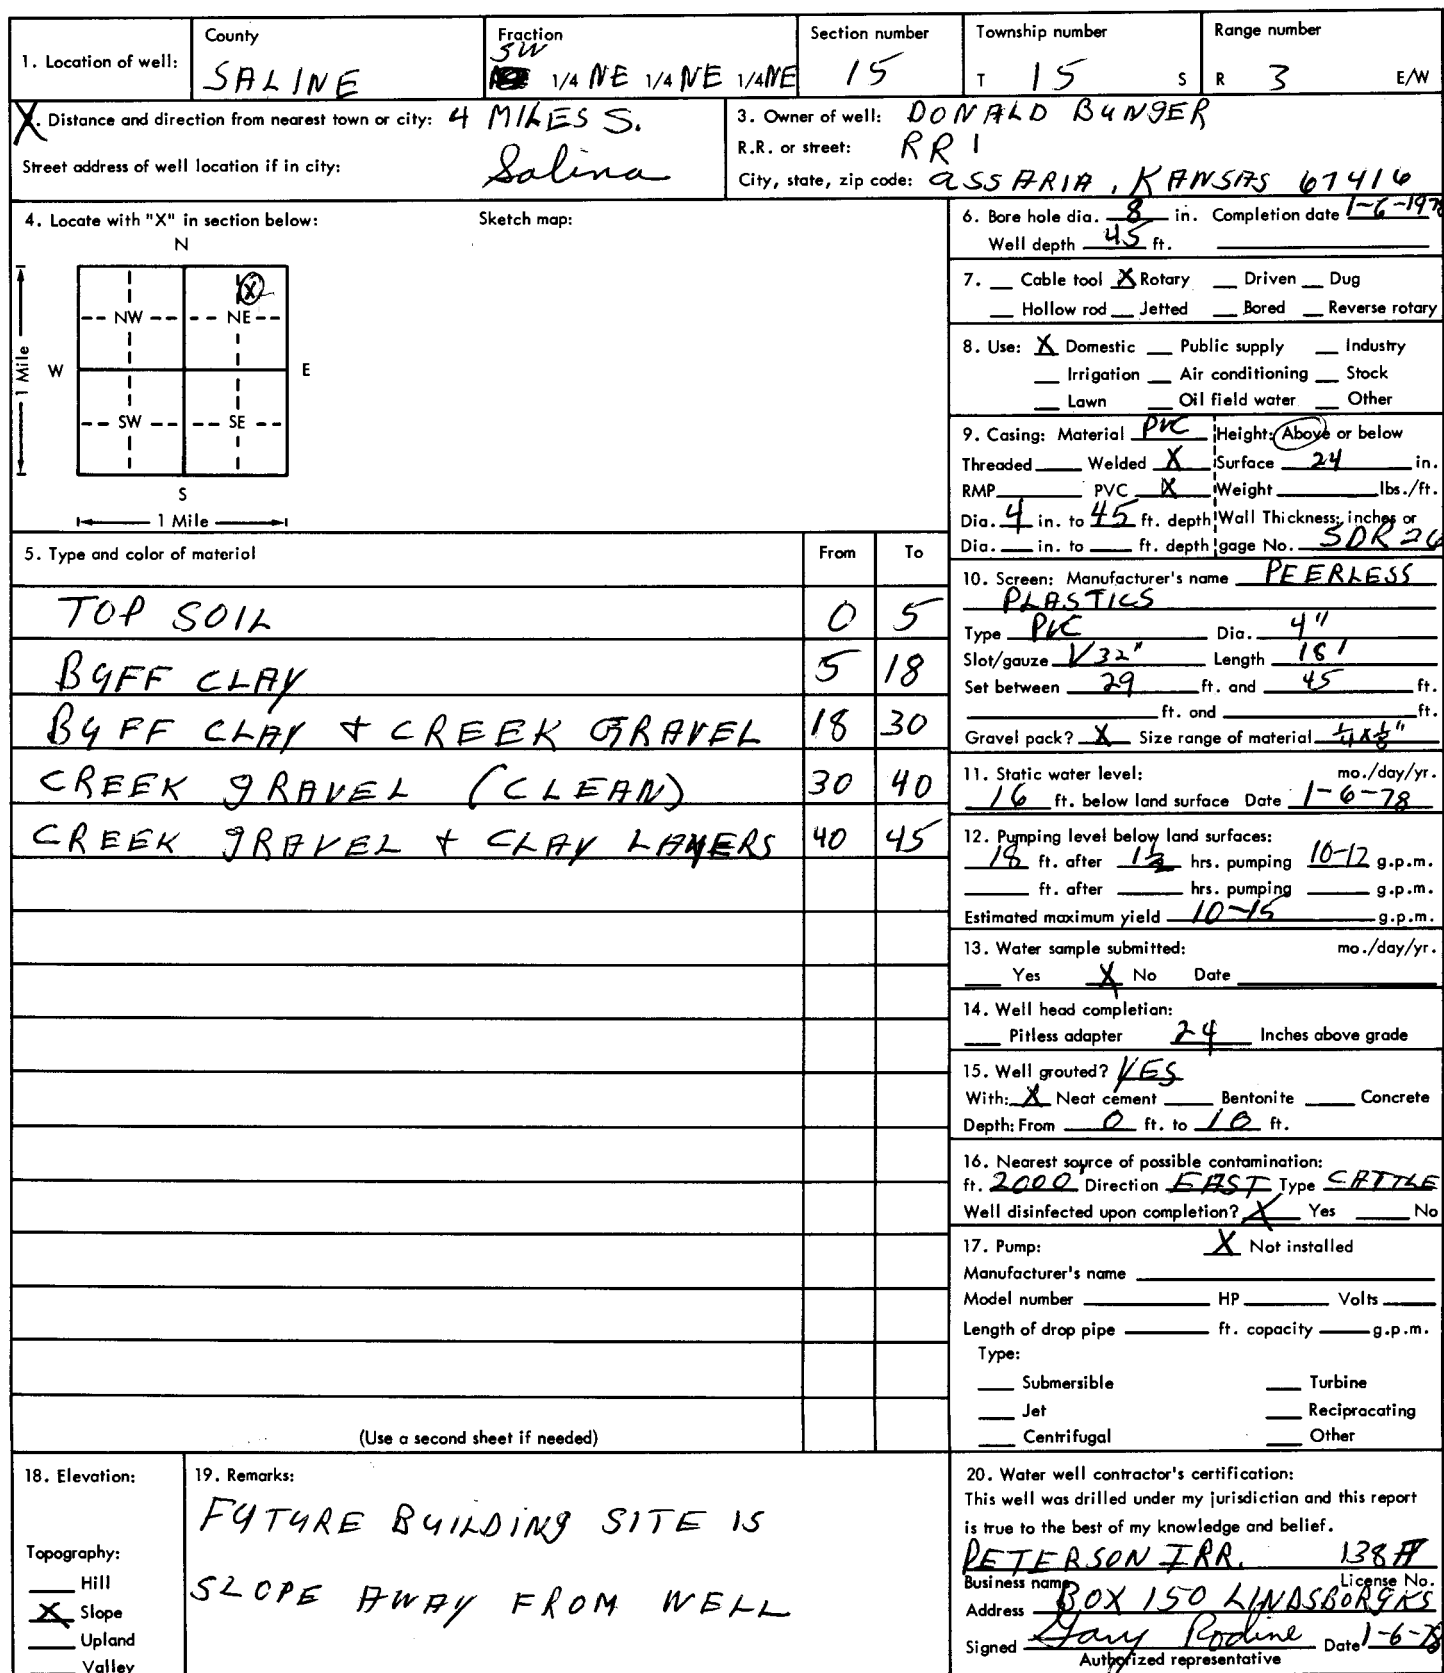 County
Fraction
Section number
Township number
Range number
1. Location of well:
SALINE
SW
1/4 NE 1/4 NE 1/4 NE
15
T 15 S
R 3 E/W
X. Distance and direction from nearest town or city: 4 MILES S.
Street address of well location if in city: Salina
3. Owner of well: DONALD BUNGER
R.R. or street: RR 1
City, state, zip code: ASSARIA, KANSAS 67416
4. Locate with "X" in section below:
Sketch map:
N
NW NE
X
W E
SW SE
S
1 Mile
1 Mile
5. Type and color of material From To
TOP SOIL 0 5
BUFF CLAY 5 18
BUFF CLAY + CREEK GRAVEL 18 30
CREEK GRAVEL (CLEAN) 30 40
CREEK GRAVEL + CLAY LAYERS 40 45
(Use a second sheet if needed)
6. Bore hole dia. 8 in. Completion date 1-6-1978
Well depth 45 ft.
7. __ Cable tool X Rotary __ Driven __ Dug
__ Hollow rod __ Jetted __ Bored __ Reverse rotary
8. Use: X Domestic __ Public supply __ Industry
__ Irrigation __ Air conditioning __ Stock
__ Lawn __ Oil field water __ Other
9. Casing: Material PVC Height: Above or below
Threaded ____ Welded X Surface 24 in.
RMP ____ PVC X Weight ____ lbs./ft.
Dia. 4 in. to 45 ft. depth Wall Thickness: inches or
Dia. __ in. to __ ft. depth gage No. SDR 26
10. Screen: Manufacturer's name PEERLESS
PLASTICS
Type PVC Dia. 4"
Slot/gauze 1/32" Length 18'
Set between 29 ft. and 45 ft.
____ ft. and ____ ft.
Gravel pack? X Size range of material 1/4 x 1/8"
11. Static water level: mo./day/yr.
16 ft. below land surface Date 1-6-78
12. Pumping level below land surfaces:
18 ft. after 1 1/2 hrs. pumping 10-12 g.p.m.
____ ft. after ____ hrs. pumping ____ g.p.m.
Estimated maximum yield 10-15 g.p.m.
13. Water sample submitted: mo./day/yr.
__ Yes X No Date ____
14. Well head completion:
__ Pitless adapter 24 Inches above grade
15. Well grouted? YES
With: X Neat cement ____ Bentonite ____ Concrete
Depth: From 0 ft. to 10 ft.
16. Nearest source of possible contamination:
ft. 2000' Direction EAST Type CATTLE
Well disinfected upon completion? X Yes ____ No
17. Pump: X Not installed
Manufacturer's name ____
Model number ____ HP ____ Volts ____
Length of drop pipe ____ ft. capacity ____ g.p.m.
Type:
__ Submersible __ Turbine
__ Jet __ Reciprocating
__ Centrifugal __ Other
18. Elevation:
Topography:
__ Hill
X Slope
__ Upland
__ Valley
19. Remarks:
FUTURE BUILDING SITE IS
SLOPE AWAY FROM WELL
20. Water well contractor's certification:
This well was drilled under my jurisdiction and this report
is true to the best of my knowledge and belief.
PETERSON IRR. 138A
Business name License No.
Address BOX 150 LINDSBORG KS
Signed Gary Rodine Date 1-6-78
Authorized representative